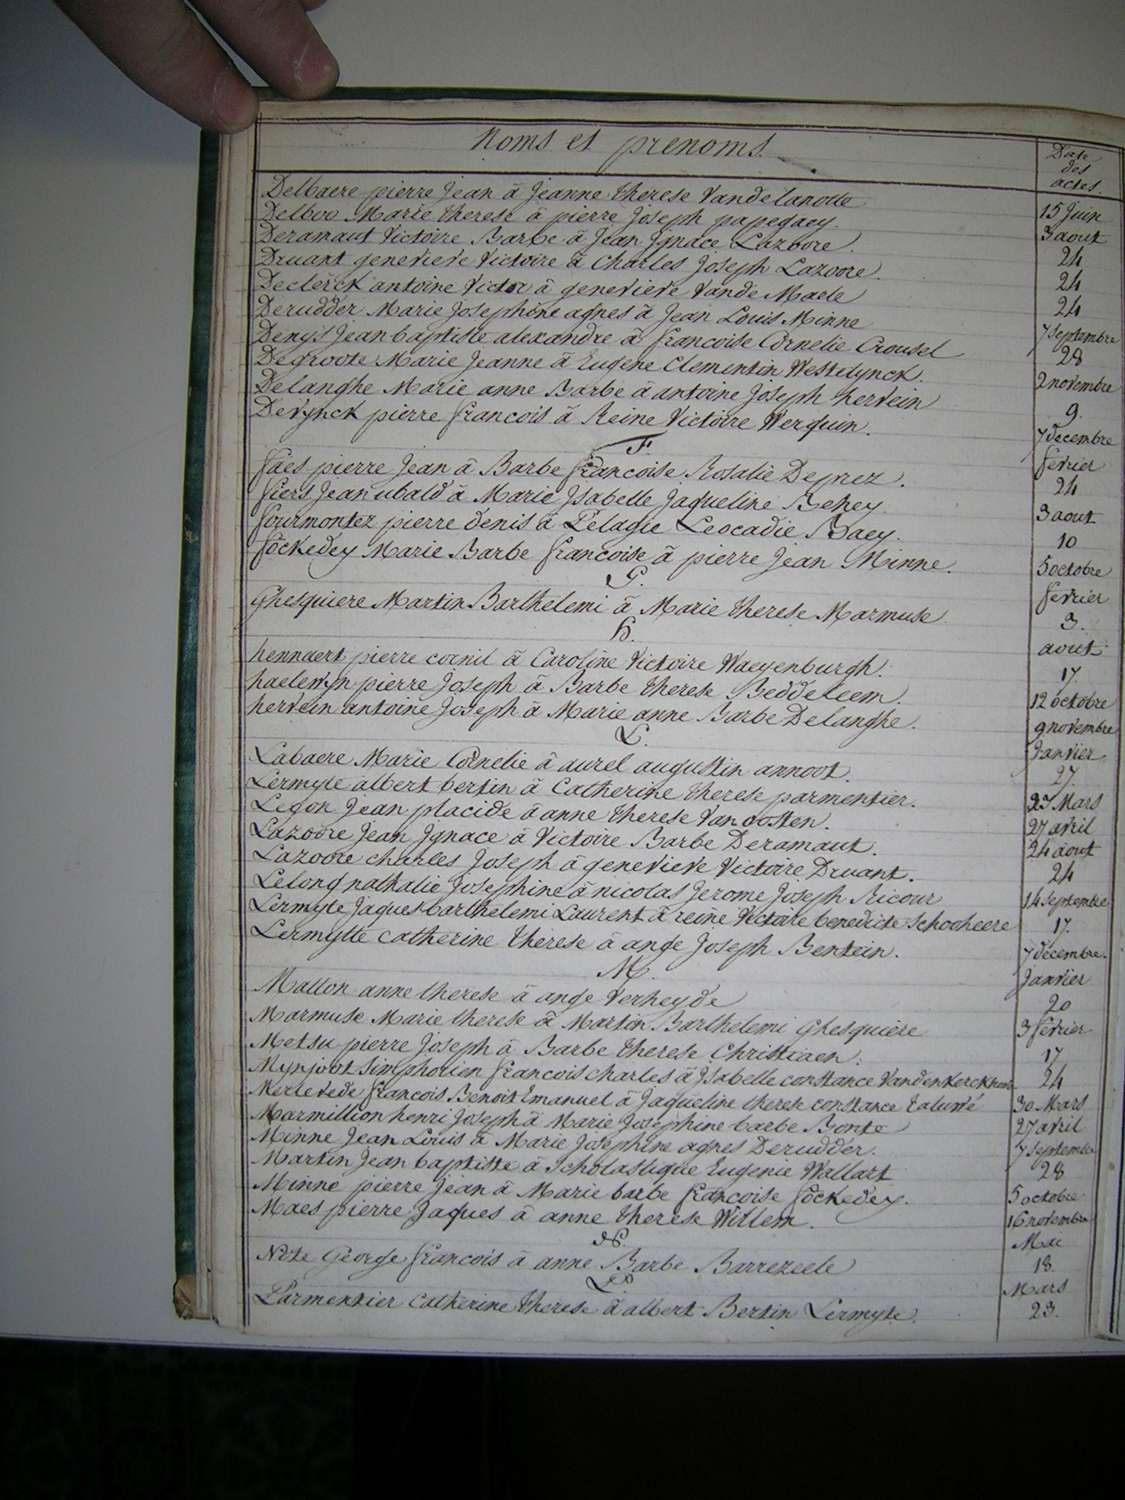 Noms et prenoms.
Date des actes
Delbaere pierre Jean à Jeanne therese Vandelanotte 15 Juin
Delbov Marie therese à pierre Joseph papegaey. 3 aout
Deramaut Victoire Barbe à Jean Ignace Lazoore. 24
Druant genevieve Victoire à Charles Joseph Lazoore. 24
Declerck antoine Victor à genevieve Vande Maele 24
Derudder Marie Josephine agnes à Jean Louis Minne 7 Septembre
Denys Jean baptiste alexandre à francoise Cornelie Crousel 28
Degroote Marie Jeanne à Eugène Clementin Westelynck. 2 novembre
Delanghe Marie anne Barbe à antoine Joseph hervein 9.
Devynck pierre francois à Reine Victoire Werquin. 7 decembre
F.
faes pierre Jean à Barbe francoise Rosalie Deprez. fevrier 24
fiers Jean ubald à Marie Isabelle Jaqueline Behey. 3 aout
fourmontez pierre denis à Pelagie Leocadie Baey. 10
fockedey Marie Barbe francoise à pierre Jean Minne. 5 octobre
G. fevrier
Ghesquiere Martin Barthelemi à Marie therese Marmuse 3.
H. aout
hennaert pierre cornil à Caroline Victoire Waeyenburgh. 17.
haelewyn pierre Joseph à Barbe therese Beddeleem. 12 octobre
hervein antoine Joseph à Marie anne Barbe Delanghe. 9 novembre
L. Janvier
Labaere Marie Cornelie à aurel augustin annoot. 27.
Lermyte albert bertin à Catherine therese parmentier. 23 Mars
Legon Jean placide à anne therese Van oosten. 27 avril
Lazoore Jean Ignace à Victoire Barbe Deramaut. 24 aout
Lazoore charles Joseph à genevieve Victoire Druant. 24
Lelong nathalie Josephine à nicolas Jerome Joseph Ricour 14 Septembre
Lermyte Jaques barthelemi Laurent à reine Victoire benedicte Schocheere 17.
Lermytte catherine therese à ange Joseph Bentein. 7 decembre.
M. Janvier
Matton anne therese à ange Verheyde 20
Marmuse Marie therese à Martin Barthelemi Ghesquiere 3 fevrier
Metsu pierre Joseph à Barbe therese Christiaen. 17
Mynjoot Simphorien francois charles à Isabelle constance Vandenkerckhove 24
Merlevede francois Benoit Emanuel à Jaqueline therese constance 30 Mars
Marmillion henri Joseph à Marie Josephine barbe Bonte 27 avril
Minne Jean Louis à Marie Josephine agnes Derudder. 7 Septembre
Martin Jean baptiste à Scholastique Eugenie Wallart 28
Minne pierre Jean à Marie barbe francoise fockedey. 5 octobre
Maes pierre Jaques à anne therese Willem. 16 novembre
N. Mai
Note George francois à anne Barbe Barrezeele 18.
P. Mars
Parmentier catherine therese à albert Bertin Lermyte. 23.